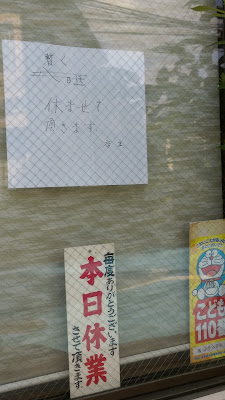 暫く
休ませて
頂きます
店主
毎度ありがとうございます
本日休業
させて頂きます
こども
110番